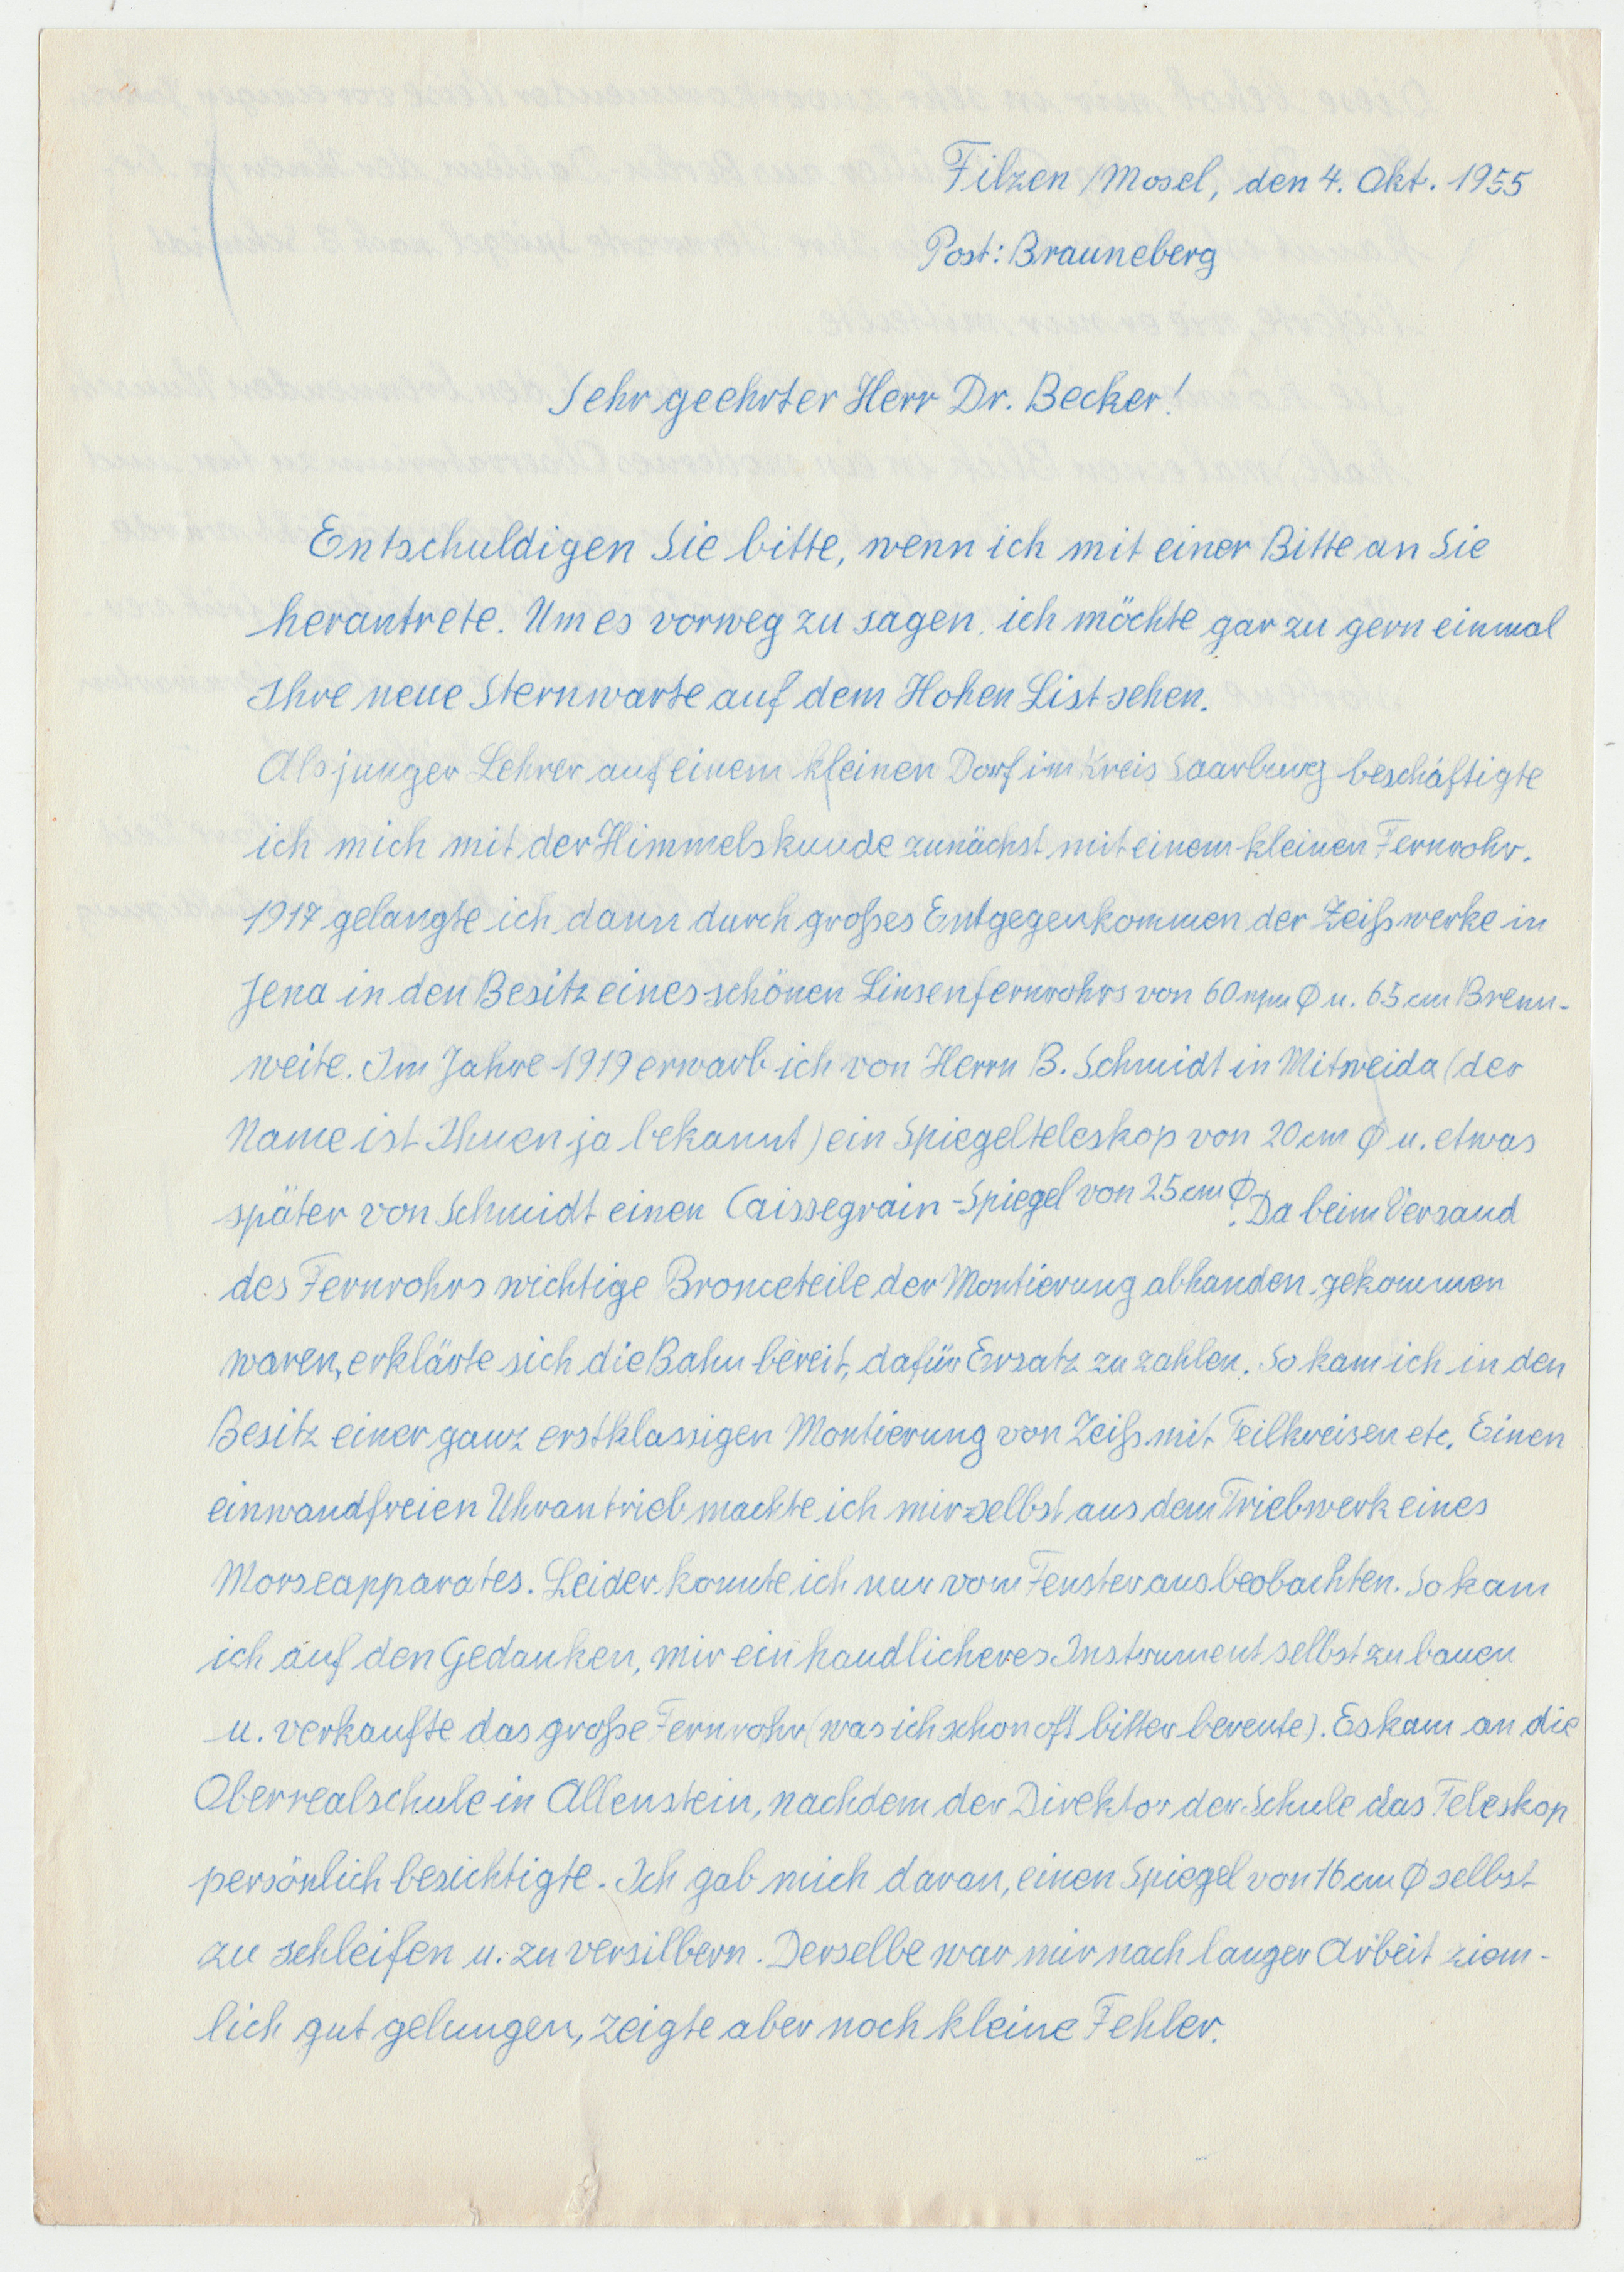 Filzen/Mosel, den 4. Okt. 1955
Post: Brauneberg
Sehr geehrter Herr Dr. Becker!
Entschuldigen Sie bitte, wenn ich mit einer Bitte an Sie
herantrete. Um es vorweg zu sagen, ich möchte gar zu gern einmal
Ihre neue Sternwarte auf dem Hohen List sehen.
Als junger Lehrer auf einem kleinen Dorf im Kreis Saarburg beschäftigte
ich mich mit der Himmelskunde zunächst mit einem kleinen Fernrohr.
1917 gelangte ich dann durch großes Entgegenkommen der Zeißwerke in
Jena in den Besitz eines schönen Linsenfernrohrs von 60 mm Φ u. 65 cm Brenn-
weite. Im Jahre 1919 erwarb ich von Herrn B. Schmidt in Mitweida (der
Name ist Ihnen ja bekannt) ein Spiegelteleskop von 20 cm Φ u. etwas
später von Schmidt einen Caissegrain-Spiegel von 25 cm Φ. Da beim Versand
des Fernrohrs wichtige Bronceteile der Montierung abhanden gekommen
waren, erklärte sich die Bahn bereit, dafür Ersatz zu zahlen. So kam ich in den
Besitz einer ganz erstklassigen Montierung von Zeiß mit Teilkreisen etc. Einen
einwandfreien Uhrantrieb machte ich mir selbst aus dem Triebwerk eines
Morseapparates. Leider konnte ich nur vom Fenster aus beobachten. So kam
ich auf den Gedanken, mir ein handlicheres Instrument selbst zu bauen
u. verkaufte das große Fernrohr (was ich schon oft bitter bereute). Es kam an die
Oberrealschule in Allenstein, nachdem der Direktor der Schule das Teleskop
persönlich besichtigte. Ich gab mich daran, einen Spiegel von 16 cm Φ selbst
zu schleifen u. zu versilbern. Derselbe war mir nach langer Arbeit ziem-
lich gut gelungen, zeigte aber noch kleine Fehler.